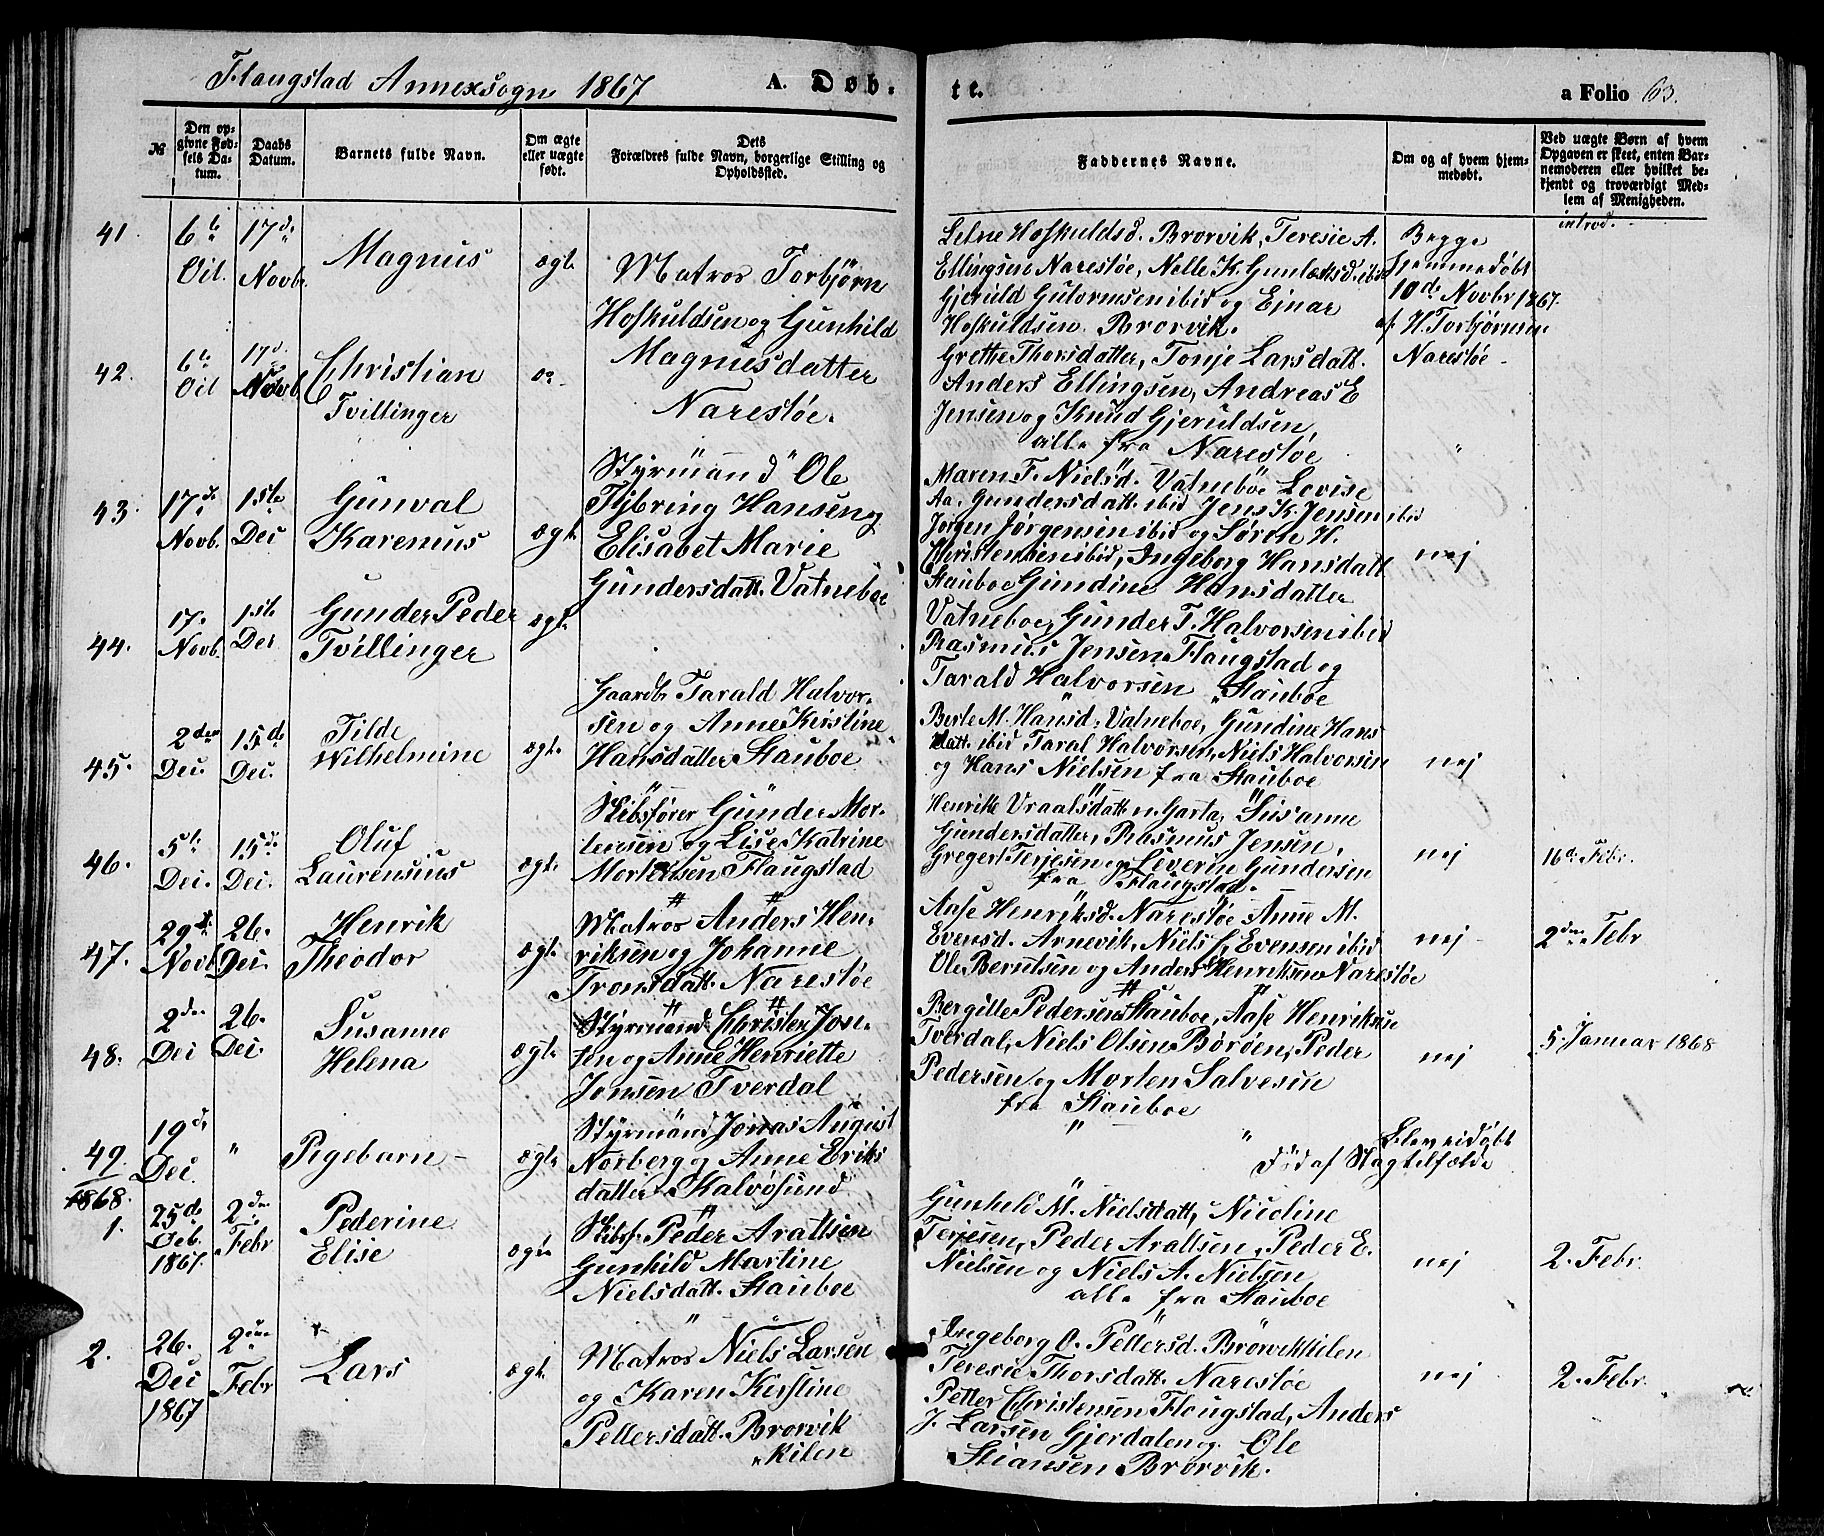 Flaugstad Annexsogn 1867 A. Døb-
te. a Folio 63.
№
Den op-
givne Fød-
sels Da-
tum.
Daabs
Datum.
Barnets fulde Navn.
Om ægte
eller uægte
født.
Dets
Forældres fulde Navn, borgerlige Stilling og
Opholdssted.
Faddernes Navne.
Om og af hvem hjem-
medøbt.
Ved uægte Børn af hvem
Opgaven er skeet, enten Bar-
nemoderen eller hvilket be-
kjendt og troværdigt Med-
lem af Menigheden.
introd.
41.
6te
Oct.
17de
Novbr.
Magnus
ægt.
Matros Torbjørn
Hofkuldsen og Gunhild
Magnusdatter
Narestøe.
Hofkuldsd. Brorvik, Teresie A.
Ellingsen Narestøe, Nelle K. ibid
Gjeruld Gutormsen ibid og Ejnar
Hofkuldsen Brorvik.
Begge
hjemmedøbt
10de Novbr 1867.
af H. Torbjørnsen
Narestøe
42.
6te
Oct
17d.
Novb.
Christian
Tvillinger
Grethe Thorsdatter, Tonje Larsdatt.
Anders Ellingsen, Andreas E
Jensen og Knud Gjeruldsen
alle fra Narestøe
"
43.
17de
Novb.
1ste
Dec
Gunval
Karenius
ægt.
Styrmand Ole
Fybring Hansen og
Elisabet Marie
Gundersdatt. Vatneboe
Maren F. Nielsd. Vatneboe Lovise
Aa. Gundersdatt. ibid Jens K. Jensen ibid
Jørgen Jørgensen ibid og Søren H.
Christensen ibid, Ingeborg Hansdatt
Stauboe Gundine Hansdatter
Vatneboe, Gunder T. Halvorsen ibid
Rasmus Jensen Flaugstad og
Tarald Halvorsen Stauboe
nej
44.
17.
Novb.
1ste
Dec
Gunder Peder
Tvillinger
ægt.
45.
2den
Dec.
15de
Dec.
Tilde
Wilhelmine
ægt.
Gaardb. Tarald Halvor-
sen og Anne Kirstine
Hansdatter Stauboe
Berte M. Hansd. Vatneboe, Gundine Hans
datt. ibid Taral Halvorsen, Niels Halvorsen
og Hans Nielsen fra Stauboe
nej
46.
5te
Dec.
15de
Dec.
Oluf
Laurensius
ægt.
Skibsfører Gunder Mor-
tensen og Lise Katrine
Mortensen Flaugstad
Henrikke Vraalsdatt. Garta, Susanne
Gundersdatter, Rasmus Jensen,
Gregert Terjesen og Severin Gundersen
fra Flaugstad.
nej
16de Febr.
47.
29de
Novb.
26.
Dec.
Henrik
Theodor
ægt.
Matros Anders Hen-
riksen og Johanne
Tronsdatt. Narestøe
Aase Henriksd. Narestøe Anne M.
Evensd. Arnevik, Niels Evensen ibid
Ole Berntsen og Anders Henriksen Narestøe
nej
2den Febr
48.
2den
Dec
26.
Dec.
Susanne
Helena
ægt.
Styrmand Christen Jon-
sen og Anne Henriette
Jonsen Tverdal
Bergitte Pedersen Stauboe, Aase Henriksen
Tverdal, Niels Olsen Børøen, Peder
Pedersen og Morten Salvesen
fra Stauboe
nej
5. Januar 1868
49
19de
Dec.
"
Pigebarn
ægt.
Styrmand Jonas August
Norberg og Anne Eriks
datter Kalvøsund
" "
Død af Slagtilfælde
1868.
1.
25de
1867.
2den
Febr
Pederine
Elise
ægte
Skibsf. Peder Araltsen
Gunhild Martine
Nielsdatt. Stauboe
Gunheld M. Nielsdatt, Nicoline
Terjesen, Peder Araltsen, Peder E.
Nielsen og Niels A. Nielsen
alle fra Stauboe
nej
2. Febr.
2.
26.
Dec
1867
2den
Febr
Lars
ægt.
Matros Niels Larsen
og Karen Kirstine
Pettersdatt. Brorvik
kilen
Ingeborg O. Pettersd. Brørvikkilen
Teresie Thorsdatt. Narestøe
Petter Christensen Flougstad, Anders
J. Larsen Gjerdalen og Ole
Stiansen Brorvik.
nej
2. Febr.